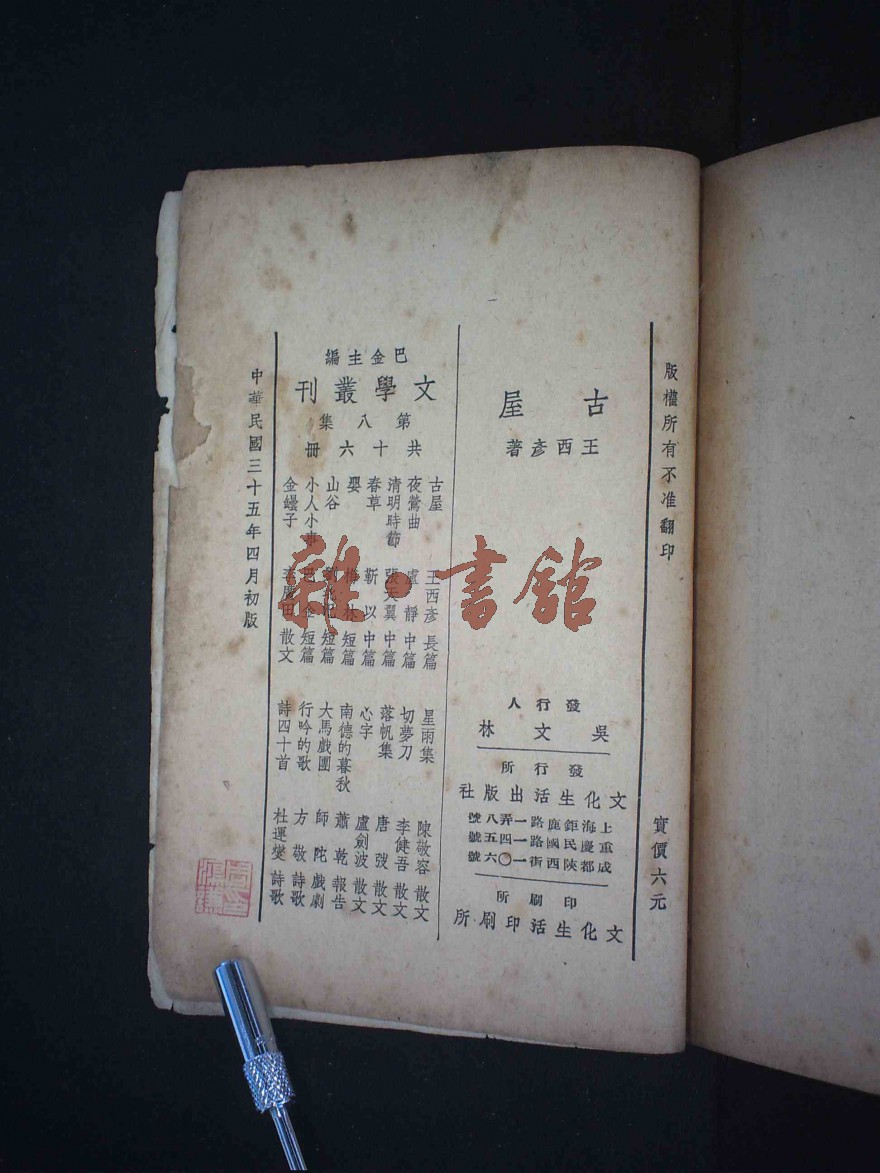 版權所有不准翻印
實價六元
古屋
王西彥著
發行人
吳文林
發行所
文化生活出版社
上海鉅鹿路一弄八號
重慶民國路一四五號
成都陝西街一〇六號
印刷所
文化生活印刷所
巴金主編
文學叢刊
第八集
共十六冊
古屋 王西彥 長篇
夜鶯曲 盧靜 中篇
清明時節 張天翼 中篇
春草 靳以 中篇
嬰 梅林 短篇
山谷 短篇
小人小事 巴金 短篇
金 子 李廣田 散文
星雨集 陳敬容 散文
切夢刀 李健吾 散文
落帆集 唐弢 散文
心字 盧劍波 散文
南德的暮秋 蕭乾 報告
大馬戲團 師陀 戲劇
行吟的歌 方敬 詩歌
詩四十首 杜運燮 詩歌
中華民國三十五年四月初版
雜·書館